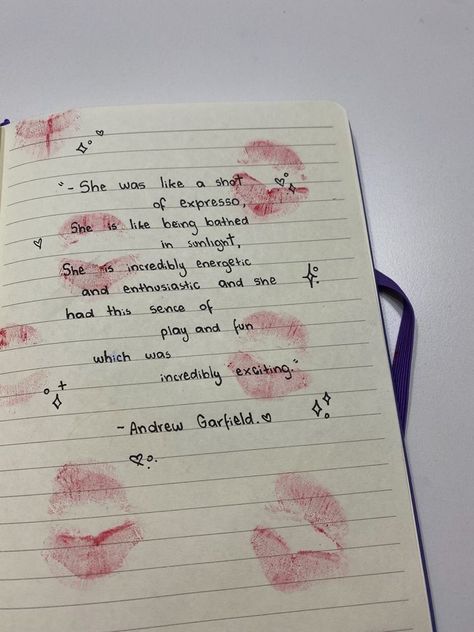 "- She was like a shot
of expresso,
She is like being bathed
in sunlight,
She is incredibly energetic
and enthusiastic and she
had this sence of
play and fun
which was
incredibly "exciting."
- Andrew Garfield.